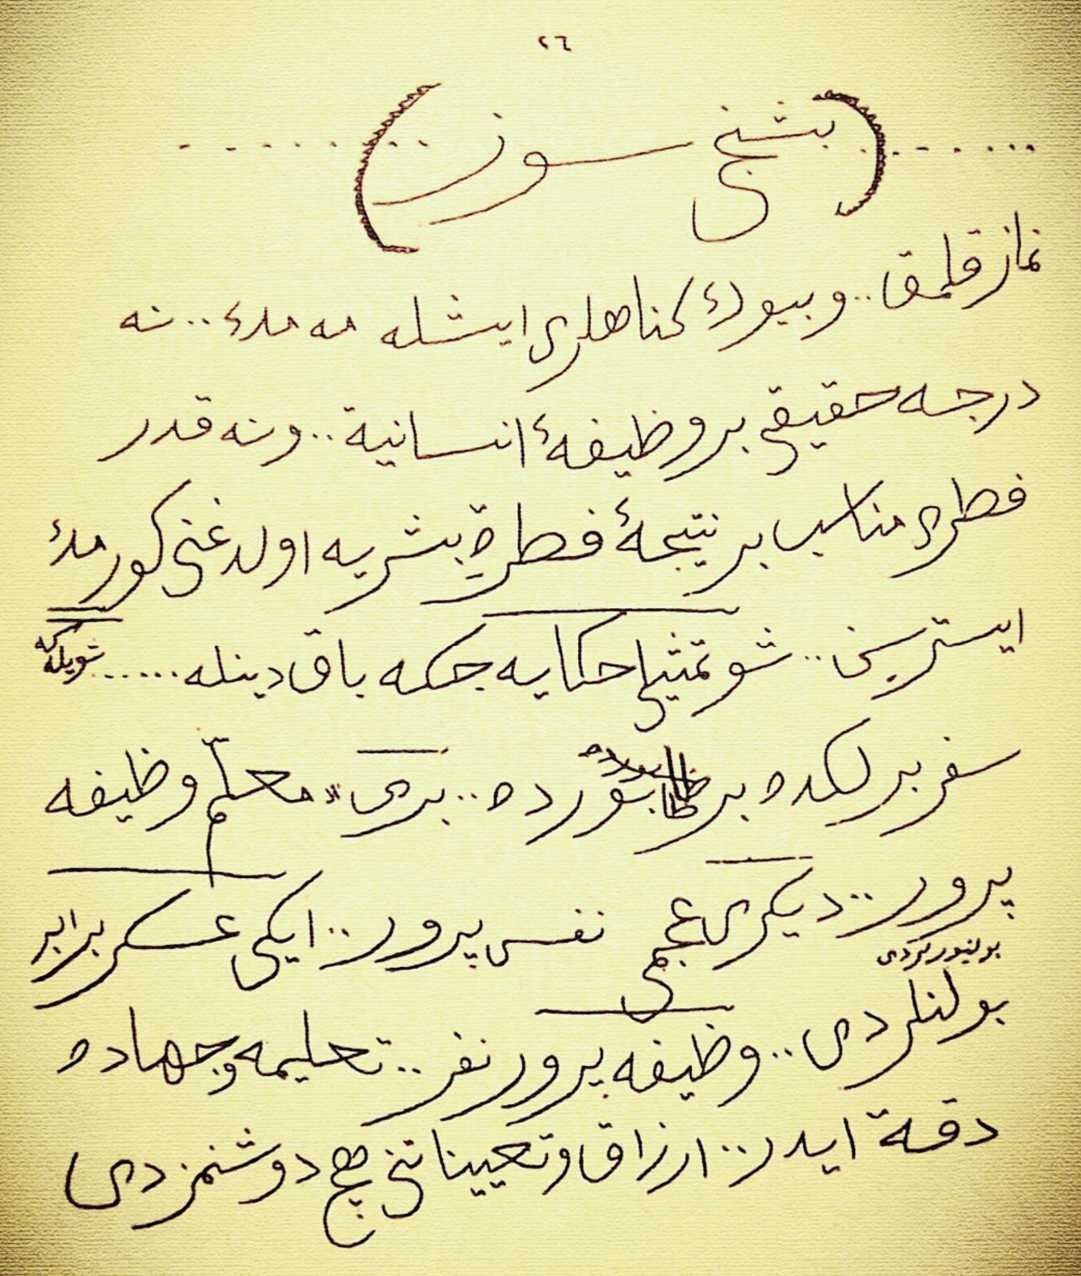 ٢٦
(بشنجی سوز)
نماز قلمق.. و بیوك كناهلری ایشله مه مك.. نه
درجه حقیقی بر وظیفهٔ انسانیة.. و نه قدر
فطری مناسب بر نتیجهٔ فطرة بشریه اولدغنی كورمك
ایسترسڭ.. شو تمثیلی حكایه جكه باق دیڭله...... شویله كه
سفر برلكده بر طابورده.. بری معلّم وظیفه
پرور.. دیكری عجمی نفس پرور.. ایكی عسكر برابر
بولنیورلردی
بولنلردی.. وظیفه پرور نفر.. تعلیمه و جهاده
دقة ایدر.. ارزاق و تعییناتنی هیچ دوشنمزدی